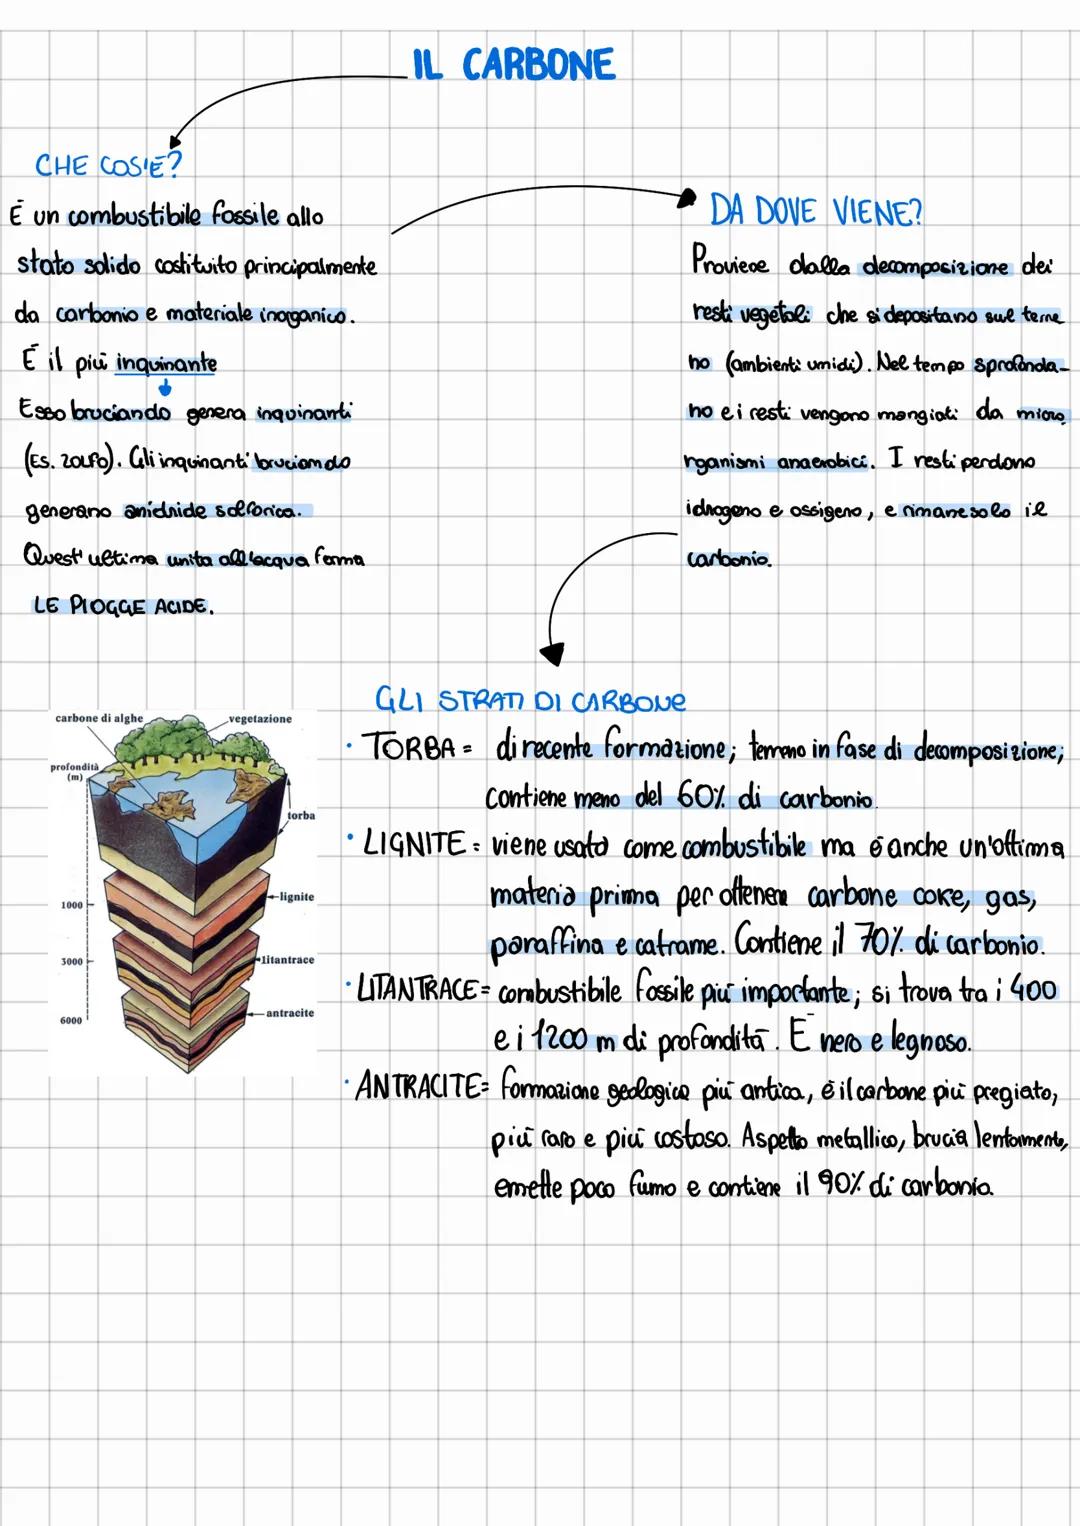 IL CARBONE
CHE COS'È?
É un combustibile fossile allo
stato solido costituito principalmente
da carbonio e materiale inorganico.
É il più inquinante
Esso bruciando genera inquinanti
(ES. ZOLFO). Gli inquinanti bruciando
generano anidride solforica.
Quest'ultima unita all'acqua forma
LE PIOGGE ACIDE.
DA DOVE VIENE?
Proviene dalla decomposizione dei
resti vegetali che si depositano sul terre
no (ambienti umidi). Nel tempo sprofonda-
no e i resti vengono mangiati da micro
rganismi anaerobici. I resti perdono
idrogeno e ossigeno, e rimane solo il
carbonio.
GLI STRATI DI CARBONE
· TORBA = di recente formazione; terreno in fase di decomposizione;
contiene meno del 60% di carbonio.
· LIGNITE = viene usato come combustibile ma è anche un'ottima
materia prima per ottenere carbone coke, gas,
paraffina e catrame. Contiene il 70% di carbonio.
· LITANTRACE = combustibile fossile più importante; si trova tra i 400
e i 1200 m di profondità. È nero e legnoso.
· ANTRACITE = formazione geologica più antica, è il carbone più pregiato,
più raro e più costoso. Aspetto metallico, brucia lentamente,
emette poco fumo e contiene il 90% di carbonio.
carbone di alghe
vegetazione
profondità
(m)
torba
lignite
1000
3000
litantrace
antracite
6000